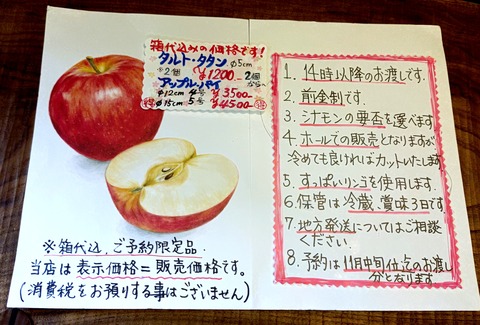 箱代込みの価格です!
タルト・タタン φ5cm
※2個 ¥1200- 2個から
アップル・パイ
φ12cm 4号 ¥3500-
得 φ15cm 5号 ¥4500- 得
※箱代込、ご予約限定品.
当店は表示価格=販売価格です。
(消費税をお預りする事はございません)
1. 14時以降のお渡しです.
2. 前金制です.
3. シナモンの要否を選べます
4. ホールでの販売となりますが
冷めても良ければカットいたします.
5. すっぱいリンゴを使用します.
6. 保管は冷蔵、賞味3日です.
7. 地方発送についてはご相談
ください.
8. 予約は11月中旬迄のお渡し
分となります